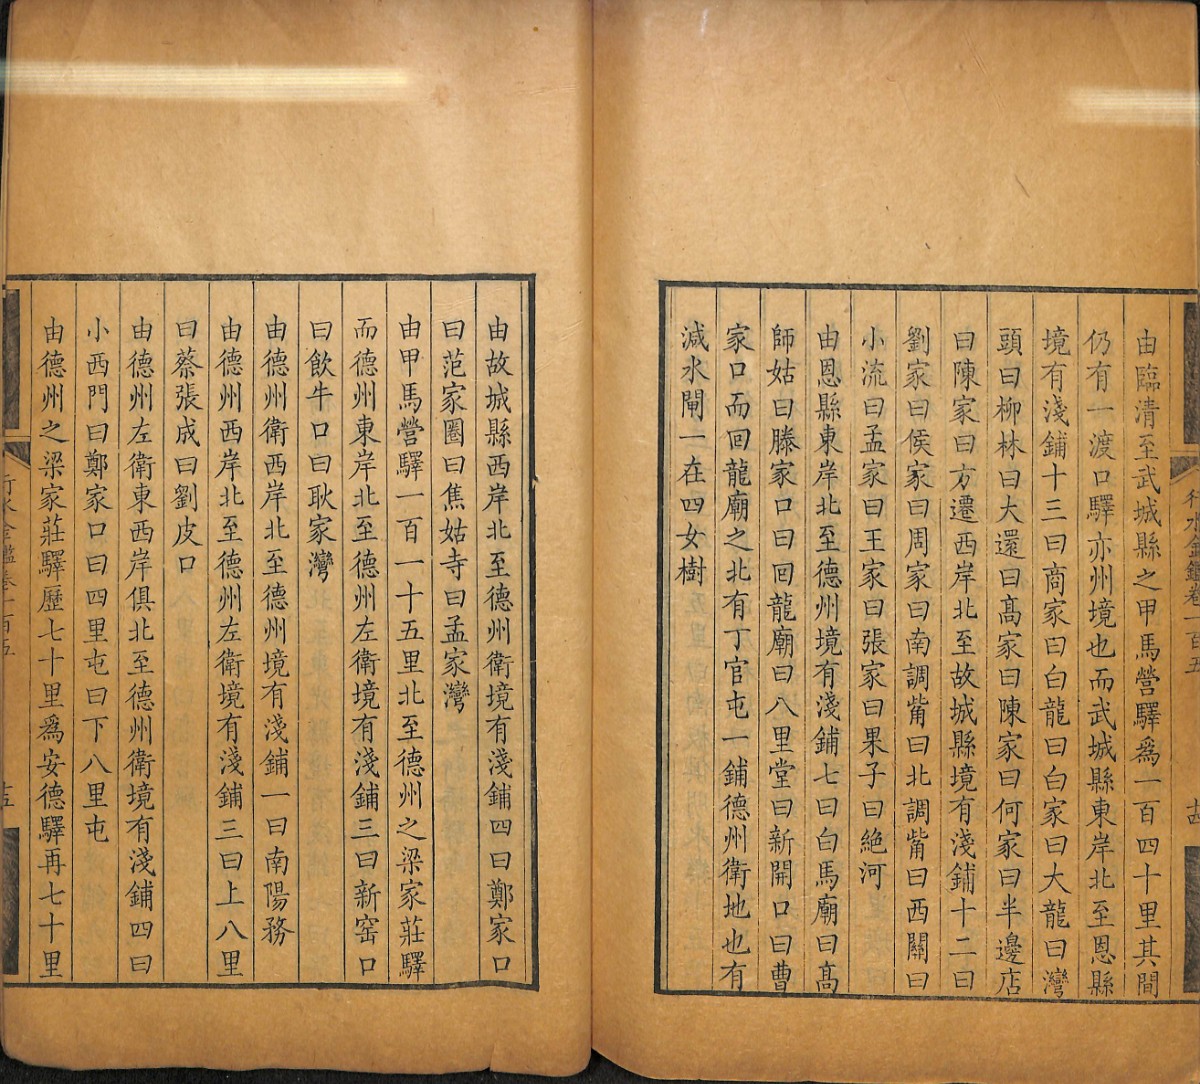 行水金鑑卷一百五
十四
由臨清至武城縣之甲馬營驛爲一百四十里其間
仍有一渡口驛亦州境也而武城縣東岸北至恩縣
境有淺鋪十三曰商家曰白龍曰白家曰大龍曰灣
頭曰柳林曰大還曰髙家曰陳家曰何家曰半邊店
曰陳家曰方遷西岸北至故城縣境有淺鋪十二曰
劉家曰侯家曰周家曰南調觜曰北調觜曰西關曰
小流曰孟家曰王家曰張家曰果子曰絕河
由恩縣東岸北至德州境有淺鋪七曰白馬廟曰髙
師姑曰滕家口曰回龍廟曰八里堂曰新開口曰曹
家口而回龍廟之北有丁官屯一鋪德州衛地也有
減水閘一在四女樹
由故城縣西岸北至德州衛境有淺鋪四曰鄭家口
曰范家圈曰焦姑寺曰孟家灣
由甲馬營驛一百一十五里北至德州之梁家莊驛
而德州東岸北至德州左衛境有淺鋪三曰新窑口
曰飲牛口曰耿家灣
由德州衛西岸北至德州境有淺鋪一曰南陽務
由德州西岸北至德州左衛境有淺鋪三曰上八里
曰蔡張成曰劉皮口
由德州左衛東西岸俱北至德州衛境有淺鋪四曰
小西門曰鄭家口曰四里屯曰下八里屯
由德州之梁家莊驛歷七十里爲安德驛再七十里
行水金鑑卷一百五
十五